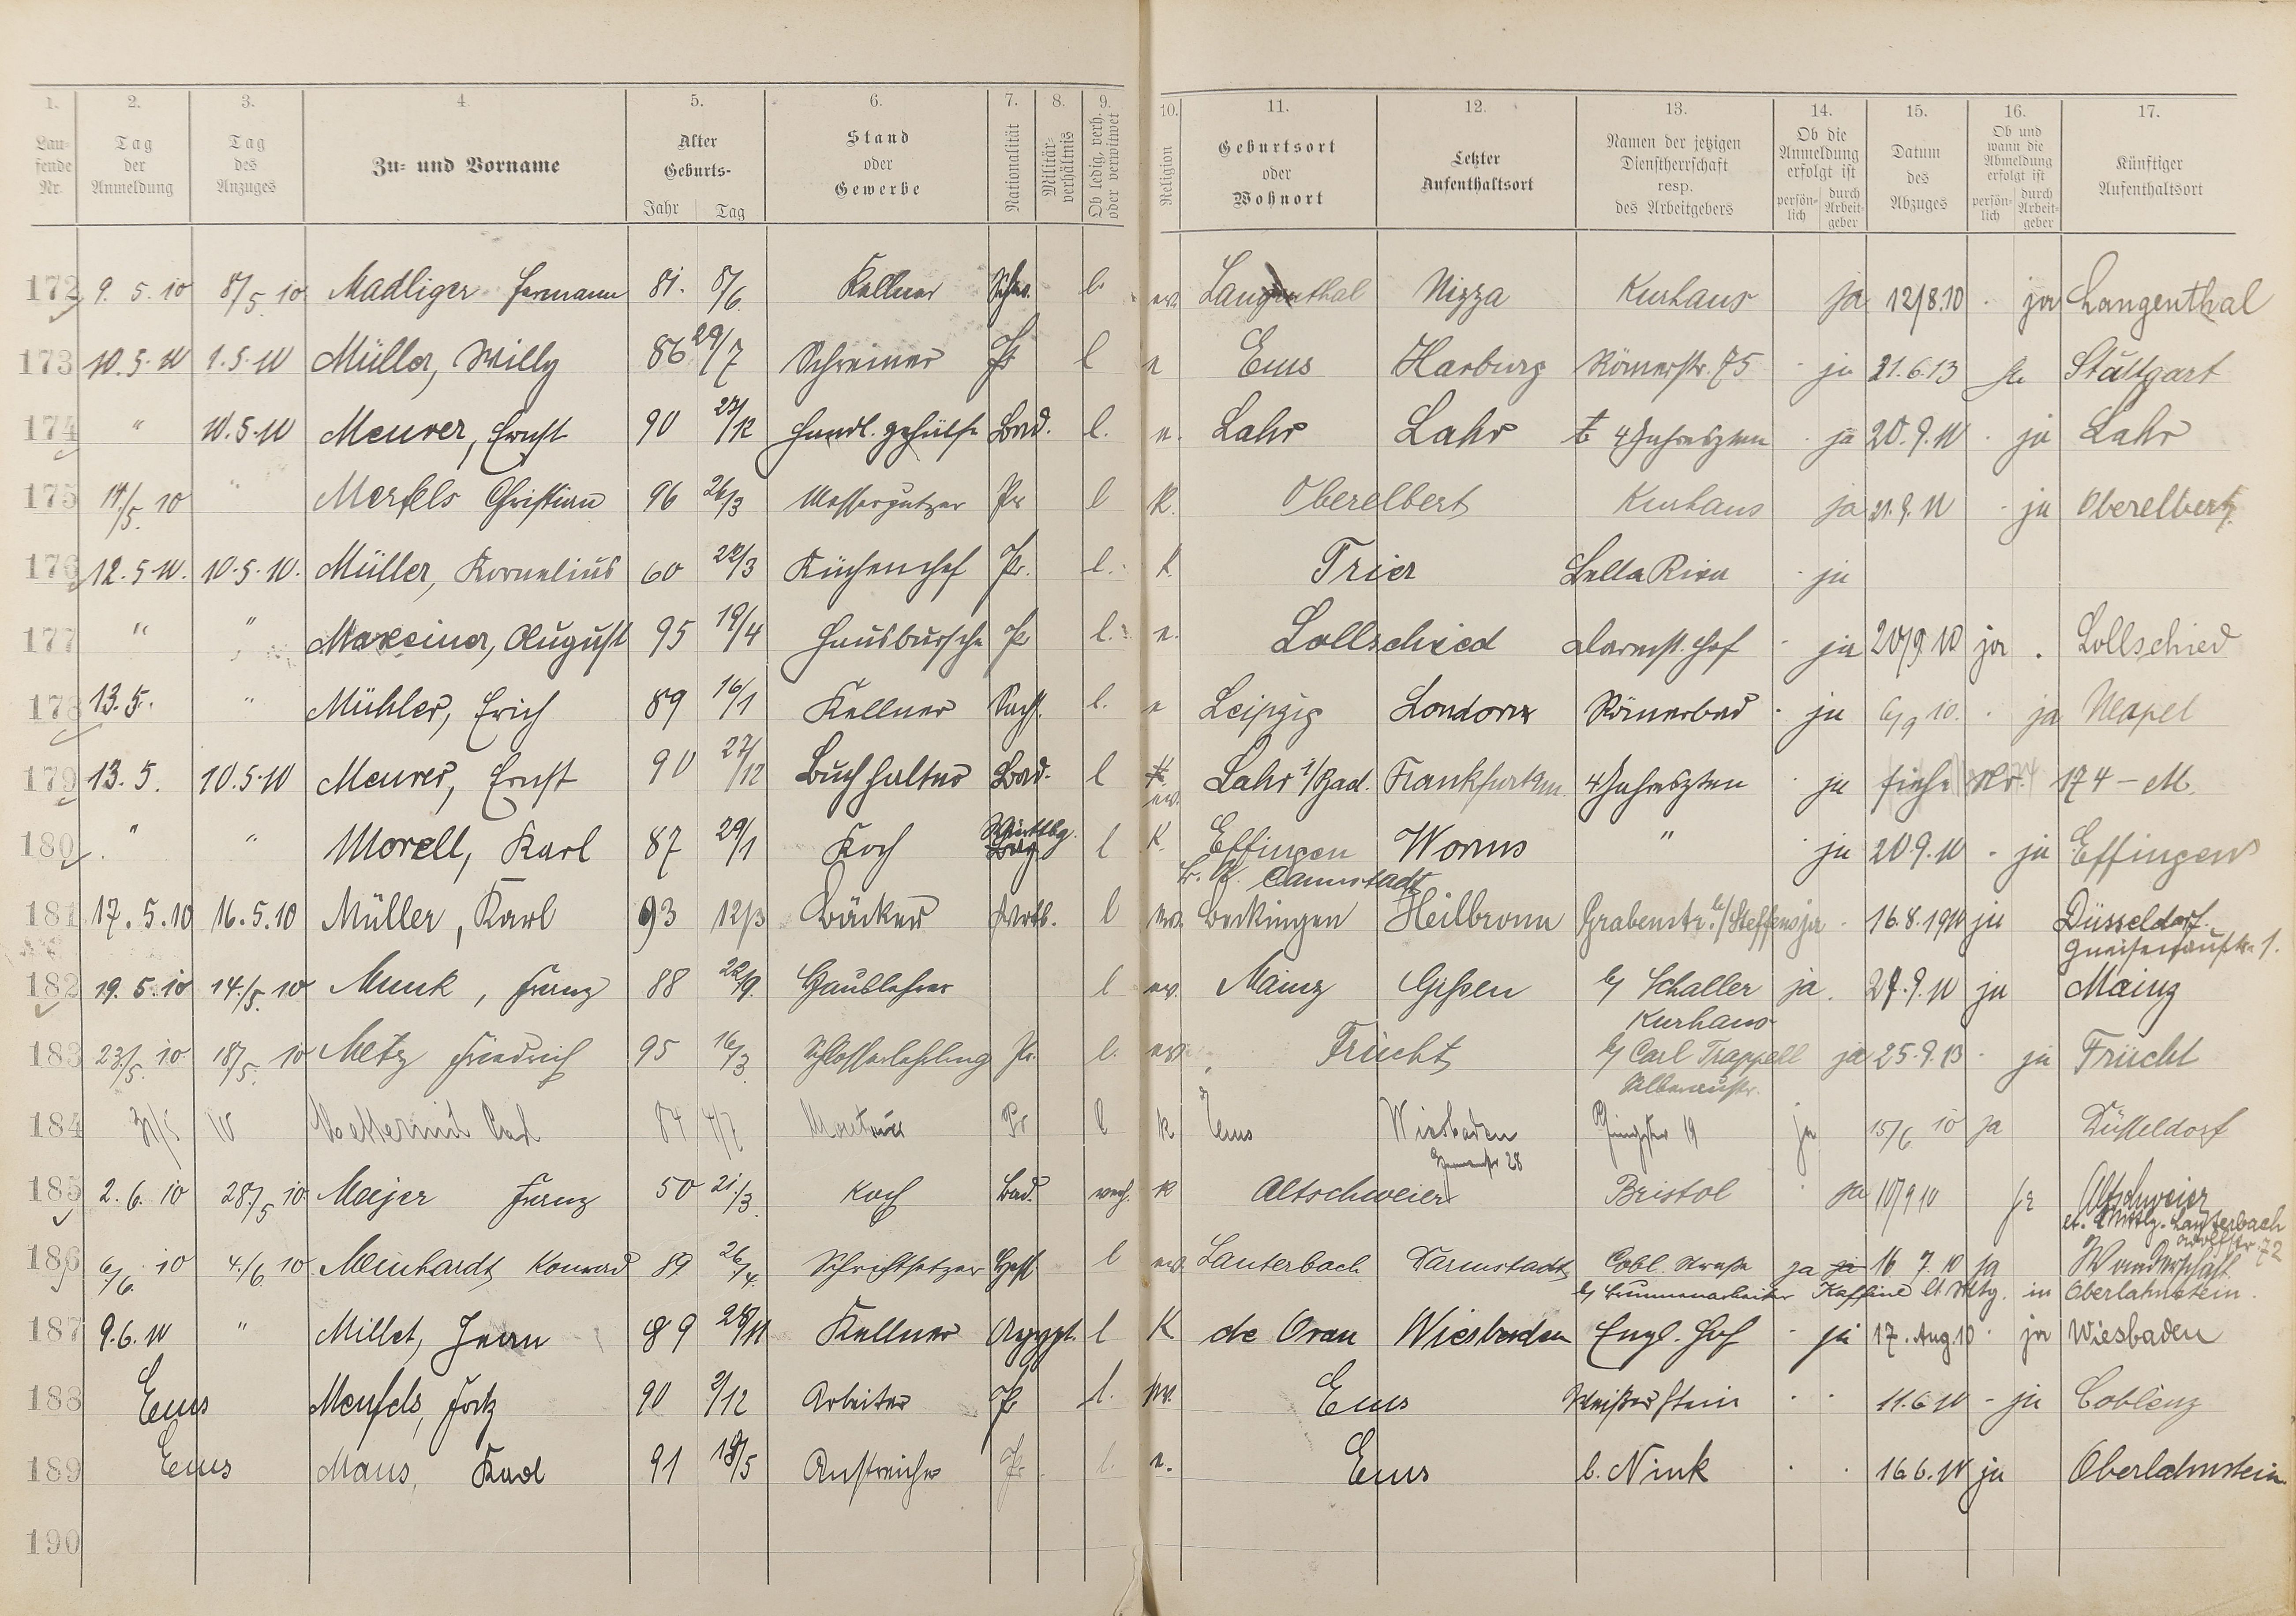 1. 2. 3. 4. 5. 6. 7. 8. 9. 10. 11. 12. 13. 14. 15. 16. 17.
Laufende Nr. Tag der Anmeldung Tag des Anzuges Zu- und Vorname Alter Geburts- Jahr Tag Stand oder Gewerbe Nationalität Militärverhältnis Ob ledig, verh. oder verwitwet Religion Geburtsort oder Wohnort Letzter Aufenthaltsort Namen der jetzigen Dienstherrschaft resp. des Arbeitgebers Ob die Anmeldung erfolgt ist persönlich durch Arbeitgeber Datum des Abzuges Ob und wann die Abmeldung erfolgt ist persönlich durch Arbeitgeber Künftiger Aufenthaltsort
172 9. 5. 10 8/5. 10 Madliger Hermann 81. 8/6 Kellner l. ev. Langenthal Nizza Kurhaus ja 12/8.10 ja Langenthal
173 10.5.10 1.5.10 Müller, Willy 86 29/7 Schreiner Pr l e Ems Harburg Römerstr. 75 ja 21.6.13 ja Stuttgart
174 " 10.5.10 Meurer, Ernst 90 27/12 Handl. gehülfe Bad. l. e. Lahr Lahr 4 Jahreszten ja 20.9.10 ja Lahr
175 11./5. 10 " Merfels Christian 96 26/3 Messerputzer Pr l K. Oberelbert Kurhaus ja 21.9.10 ja Oberelbert
176 12.5.10. 10.5.10. Müller, Kornelius 60 22/3 Küchenchef Pr. l. k. Trier Bella Riva ja
177 " " Maxeiner, August 95 19/4 Hausbursche Pr l. e. Lollschied Darmst. Hof ja 20/9 10 ja . Lollschied
178 13.5. " Mühler, Erich 89 16/1 Kellner Sachs. l. e Leipzig London Römerbad ja 6/9 10. ja Neapel
179 13.5. 10.5.10 Meurer, Ernst 90 27/12 Buchhalter Bad. l ev. Lahr i/Bad. Frankfurt a/m. 4 Jahreszten ja siehe Nr. 174 - M.
180 " " Morell, Karl 87 29/1 Koch Württbg. l K. Effingen Worms " ja 20.9.10 ja Effingen
Cannstadt
181 17.5.10 16.5.10 Müller, Karl 93 12/3 Bäcker Wrtb. l ev. Beckingen Heilbronn Grabenstr. b/Steffens ja 16.8.1910 ja Düsseldorf.
Gneisenaustr. 1.
182 19.5.10 14./5. 10 Munk, Franz 88 22/9. l ev. Mainz Gißen b/ Schaller ja. 27.9.10 ja Mainz
Kurhaus
183 23./5. 10 18/5. 10 Metz Friedrich 95 16/3. Schlosserlehrling Pr. l. ev. Frücht b/ Carl Trappell ja 25.9.13 ja Frücht
184 84 4/7 Pr l k Ems Wiesbaden 19 ja 15/6 10 ja Düsseldorf
28
185 2. 6. 10 28./5 10 Meijer Franz 50 21/3. Koch Bad. k Altschweier Bristol ja 10/9 10 ja Altschweier
Lauterbach
72
186 6/6. 10 4./6. 10 Meinhardt Konrad 89 26/4. Schriftsetzer Hess. l ev. Lauterbach Darmstadt Cobl. Strasse ja ja 16 7. 10 ja Wanderschaft
b/ Brunnenarbeiter Kaffine in Oberlahnstein.
187 9.6.10 " Millet, Jean 89 28/11 Kellner Aegypt. l K de Oran Wiesbaden Engl. Hof ja 17. Aug. 10 ja Wiesbaden
188 Ems 90 2/12 Arbeiter Pr l. ev. Ems Weißer Stein 11.6.10 - ja Coblenz
189 Ems Maus, Karl 91 18/5 Anstreicher Pr. l. e. Ems b. Nink 16.6.10 ja Oberlahnstein
190